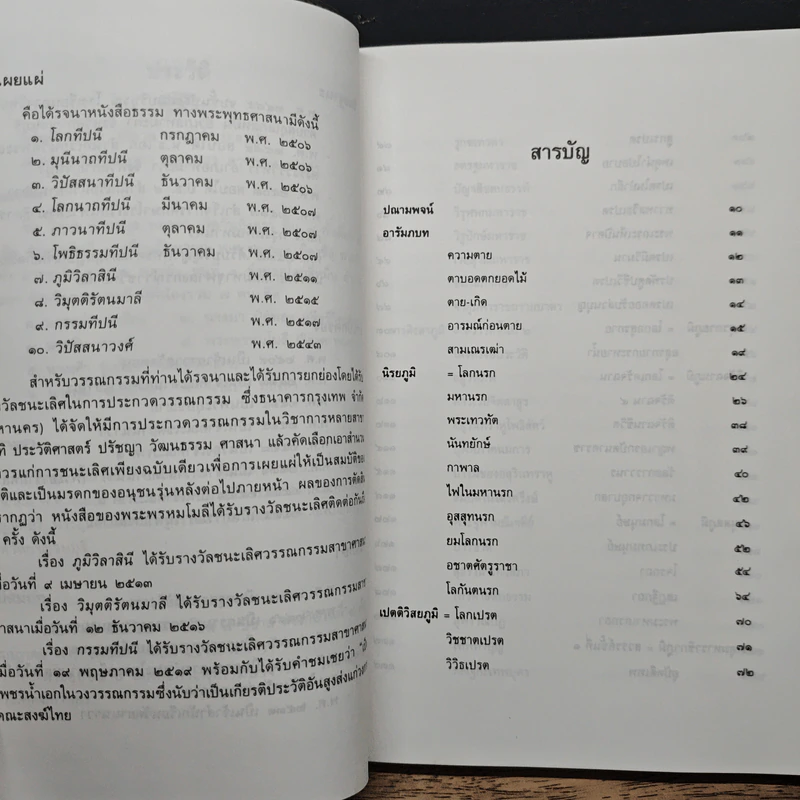 เผยแผ่
คือได้รจนาหนังสือธรรม ทางพระพุทธศาสนามีดังนี้
๑. โลกทีปนี กรกฎาคม พ.ศ. ๒๕๐๖
๒. มุนีนาถทีปนี ตุลาคม พ.ศ. ๒๕๐๖
๓. วิปัสสนาทีปนี ธันวาคม พ.ศ. ๒๕๐๖
๔. โลกนาถทีปนี มีนาคม พ.ศ. ๒๕๐๗
๕. ภาวนาทีปนี ตุลาคม พ.ศ. ๒๕๐๗
๖. โพธิธรรมทีปนี ธันวาคม พ.ศ. ๒๕๐๗
๗. ภูมิวิลาสินี พ.ศ. ๒๕๑๑
๘. วิมุตติรัตนมาลี พ.ศ. ๒๕๑๕
๙. กรรมทีปนี พ.ศ. ๒๕๑๗
๑๐. วิปัสสนาวงศ์ พ.ศ. ๒๕๔๓
สำหรับวรรณกรรมที่ท่านได้รจนาและได้รับการยกย่องโดยได้รับ
งวัลชนะเลิศในการประกวดวรรณกรรม ซึ่งธนาคารกรุงเทพ จำกัด
หานคร) ได้จัดให้มีการประกวดวรรณกรรมในวิชาการหลายสาขา
ทิ ประวัติศาสตร์ ปรัชญา วัฒนธรรม ศาสนา แล้วคัดเลือกเอาสำนวน
ควรแก่การชนะเลิศเพียงฉบับเดียวเพื่อการเผยแผ่ให้เป็นสมบัติของ
ติและเป็นมรดกของอนุชนรุ่นหลังต่อไปภายหน้า ผลของการตัดสิน
รากฏว่า หนังสือของพระพรหมโมลีได้รับรางวัลชนะเลิศติดต่อกันถึง
ครั้ง ดังนี้
เรื่อง ภูมิวิลาสินี ได้รับรางวัลชนะเลิศวรรณกรรมสาขาศาสนา
มื่อวันที่ ๙ เมษายน ๒๕๑๓
เรื่อง วิมุตติรัตนมาลี ได้รับรางวัลชนะเลิศวรรณกรรมสาขา
าสนาเมื่อวันที่ ๑๒ ธันวาคม ๒๕๑๖
เรื่อง กรรมทีปนี ได้รับรางวัลชนะเลิศวรรณกรรมสาขาศาสนา
มื่อวันที่ ๑๙ พฤษภาคม ๒๕๑๙ พร้อมกับได้รับคำชมเชยว่า
เพชรน้ำเอกในวงวรรณกรรมซึ่งนับว่าเป็นเกียรติประวัติอันสูงส่งแก่วงการ
คณะสงฆ์ไทย
สารบัญ
ปณามพจน์ ๑๐
อารัมภบท ๑๑
ความตาย ๑๒
ตาบอดตกยอดไม้ ๑๓
ตาย-เกิด ๑๔
อารมณ์ก่อนตาย ๑๕
สามเณรเฒ่า ๑๙
นิรยภูมิ = โลกนรก ๒๔
มหานรก ๒๖
พระเทวทัต ๓๘
นันทยักษ์ ๓๙
กาพาล ๔๐
ไฟในมหานรก ๔๒
อุสสุทนรก ๔๖
ยมโลกนรก ๕๒
อชาตศัตรูราชา ๕๔
โลกันตนรก ๖๔
เปตติวิสยภูมิ = โลกเปรต ๗๐
วิชชาตเปรต ๗๑
วิวิธเปรต ๗๒